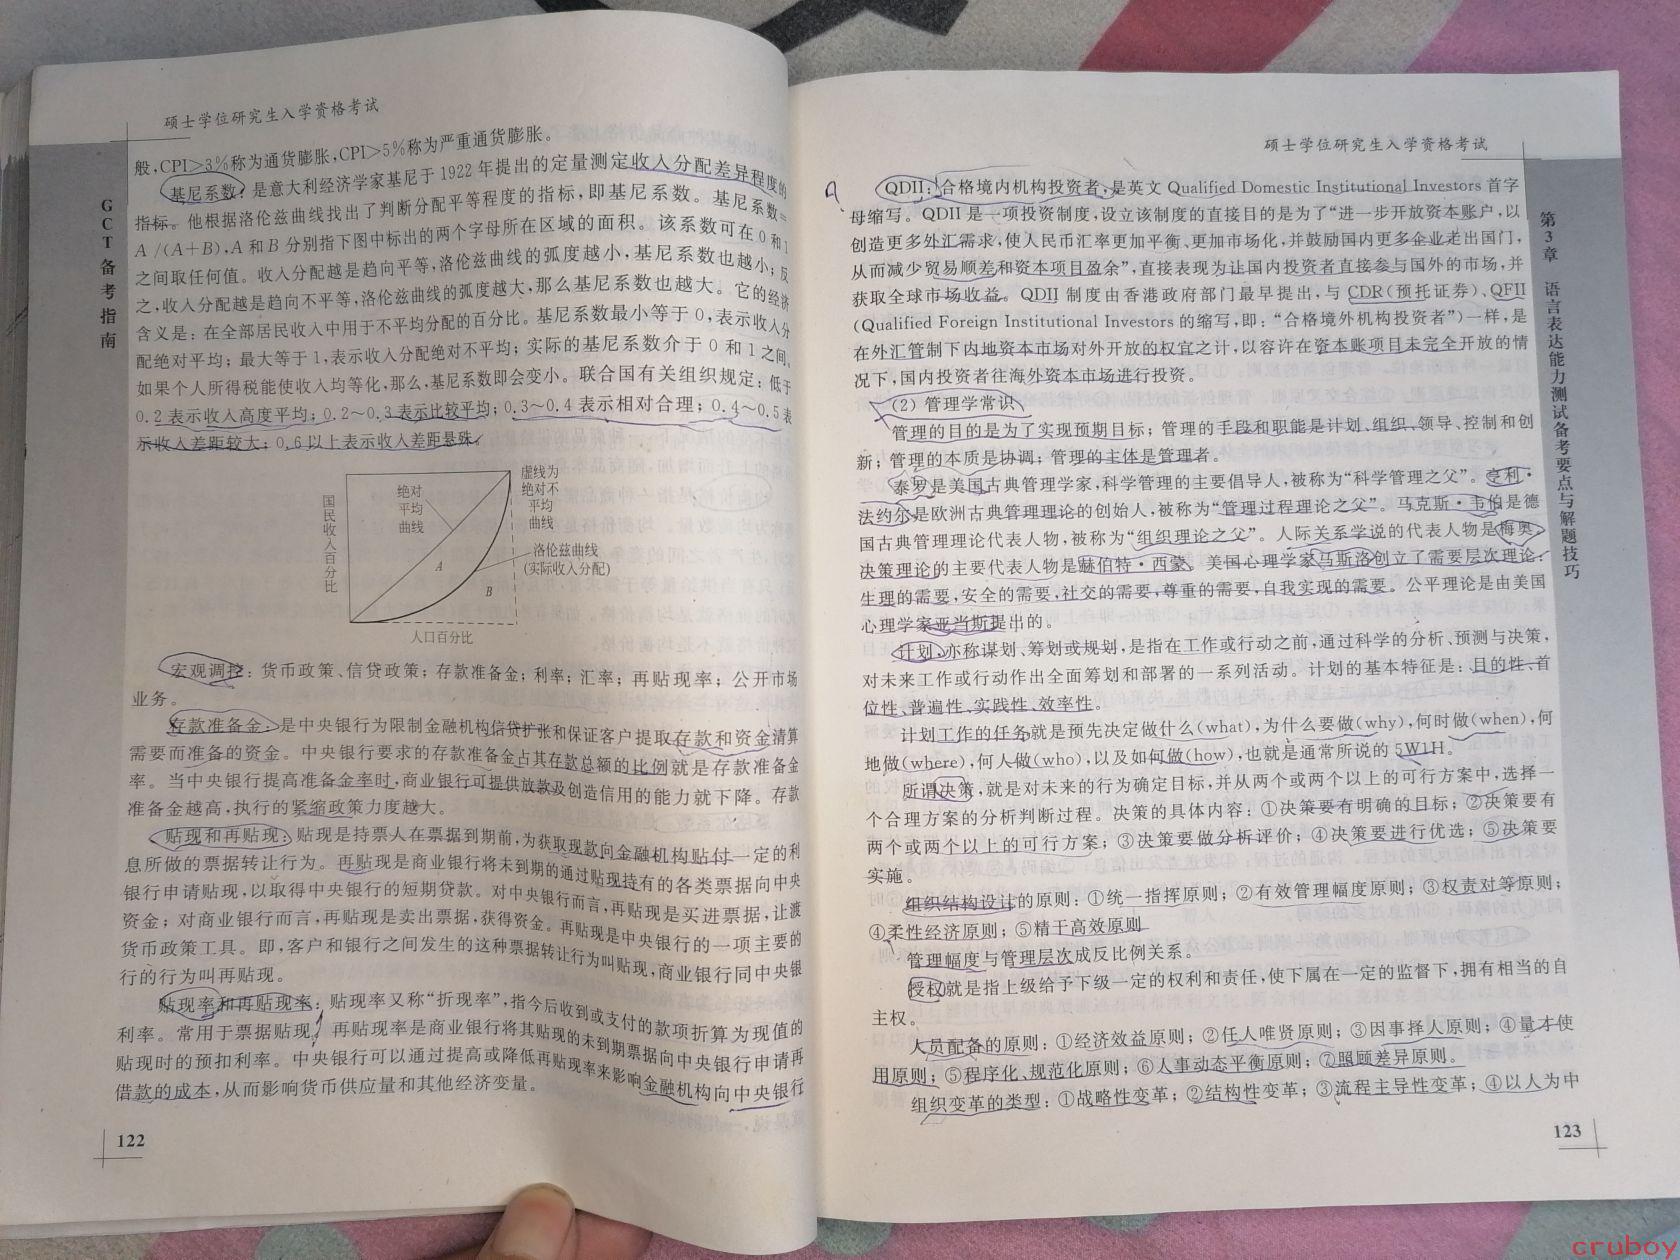 硕士学位研究生入学资格考试
GCT备考指南
般,CPI>3%称为通货膨胀,CPI>5%称为严重通货膨胀。
基尼系数:是意大利经济学家基尼于1922年提出的定量测定收入分配差异程度的
指标。他根据洛伦兹曲线找出了判断分配平等程度的指标,即基尼系数。基尼系数=
A/(A+B),A和B分别指下图中标出的两个字母所在区域的面积。该系数可在0和1
之间取任何值。收入分配越是趋向平等,洛伦兹曲线的弧度越小,基尼系数也越小;反
之,收入分配越是趋向不平等,洛伦兹曲线的弧度越大,那么基尼系数也越大。它的经济
含义是:在全部居民收入中用于不平均分配的百分比。基尼系数最小等于0,表示收入分
配绝对平均;最大等于1,表示收入分配绝对不平均;实际的基尼系数介于0和1之间。
如果个人所得税能使收入均等化,那么,基尼系数即会变小。联合国有关组织规定:低于
0.2表示收入高度平均;0.2~0.3表示比较平均;0.3~0.4表示相对合理;0.4~0.5表
示收入差距较大;0.6以上表示收入差距悬殊。
国民收入百分比
绝对
平均
曲线
虚线为
绝对不
平均
曲线
洛伦兹曲线
(实际收入分配)
A
B
人口百分比
宏观调控:货币政策、信贷政策;存款准备金;利率;汇率;再贴现率;公开市场
业务。
存款准备金:是中央银行为限制金融机构信贷扩张和保证客户提取存款和资金清算
需要而准备的资金。中央银行要求的存款准备金占其存款总额的比例就是存款准备金
率。当中央银行提高准备金率时,商业银行可提供放款及创造信用的能力就下降。存款
准备金越高,执行的紧缩政策力度越大。
贴现和再贴现:贴现是持票人在票据到期前,为获取现款向金融机构贴付一定的利
息所做的票据转让行为。再贴现是商业银行将未到期的通过贴现持有的各类票据向中央
银行申请贴现,以取得中央银行的短期贷款。对中央银行而言,再贴现是买进票据,让渡
资金;对商业银行而言,再贴现是卖出票据,获得资金。再贴现是中央银行的一项主要的
货币政策工具。即,客户和银行之间发生的这种票据转让行为叫贴现,商业银行同中央银
行的行为叫再贴现。
贴现率和再贴现率:贴现率又称“折现率”,指今后收到或支付的款项折算为现值的
利率。常用于票据贴现。再贴现率是商业银行将其贴现的未到期票据向中央银行申请再
贴现时的预扣利率。中央银行可以通过提高或降低再贴现率来影响金融机构向中央银行
借款的成本,从而影响货币供应量和其他经济变量。
122
硕士学位研究生入学资格考试
第3章 语言表达能力测试备考要点与解题技巧
QDII:合格境内机构投资者,是英文Qualified Domestic Institutional Investors首字
母缩写。QDII是一项投资制度,设立该制度的直接目的是为了“进一步开放资本账户,以
创造更多外汇需求,使人民币汇率更加平衡、更加市场化,并鼓励国内更多企业走出国门,
从而减少贸易顺差和资本项目盈余”,直接表现为让国内投资者直接参与国外的市场,并
获取全球市场收益。QDII制度由香港政府部门最早提出,与CDR(预托证券)、QFII
(Qualified Foreign Institutional Investors的缩写,即:“合格境外机构投资者”)一样,是
在外汇管制下内地资本市场对外开放的权宜之计,以容许在资本账项目未完全开放的情
况下,国内投资者往海外资本市场进行投资。
(2)管理学常识
管理的目的是为了实现预期目标;管理的手段和职能是计划、组织、领导、控制和创
新;管理的本质是协调;管理的主体是管理者。
泰罗是美国古典管理学家,科学管理的主要倡导人,被称为“科学管理之父”。亨利·
法约尔是欧洲古典管理理论的创始人,被称为“管理过程理论之父”。马克斯·韦伯是德
国古典管理理论代表人物,被称为“组织理论之父”。人际关系学说的代表人物是梅奥。
决策理论的主要代表人物是赫伯特·西蒙。美国心理学家马斯洛创立了需要层次理论:
生理的需要,安全的需要,社交的需要,尊重的需要,自我实现的需要。公平理论是由美国
心理学家亚当斯提出的。
计划,亦称谋划、筹划或规划,是指在工作或行动之前,通过科学的分析、预测与决策,
对未来工作或行动作出全面筹划和部署的一系列活动。计划的基本特征是:目的性、首
位性、普遍性、实践性、效率性。
计划工作的任务就是预先决定做什么(what),为什么要做(why),何时做(when),何
地做(where),何人做(who),以及如何做(how),也就是通常所说的5W1H。
所谓决策,就是对未来的行为确定目标,并从两个或两个以上的可行方案中,选择一
个合理方案的分析判断过程。决策的具体内容:①决策要有明确的目标;②决策要有
两个或两个以上的可行方案;③决策要做分析评价;④决策要进行优选;⑤决策要
实施。
组织结构设计的原则:①统一指挥原则;②有效管理幅度原则;③权责对等原则;
④柔性经济原则;⑤精干高效原则
管理幅度与管理层次成反比例关系。
授权就是指上级给予下级一定的权利和责任,使下属在一定的监督下,拥有相当的自
主权。
人员配备的原则:①经济效益原则;②任人唯贤原则;③因事择人原则;④量才使
用原则;⑤程序化、规范化原则;⑥人事动态平衡原则;⑦照顾差异原则。
组织变革的类型:①战略性变革;②结构性变革;③流程主导性变革;④以人为中
123
cruboy